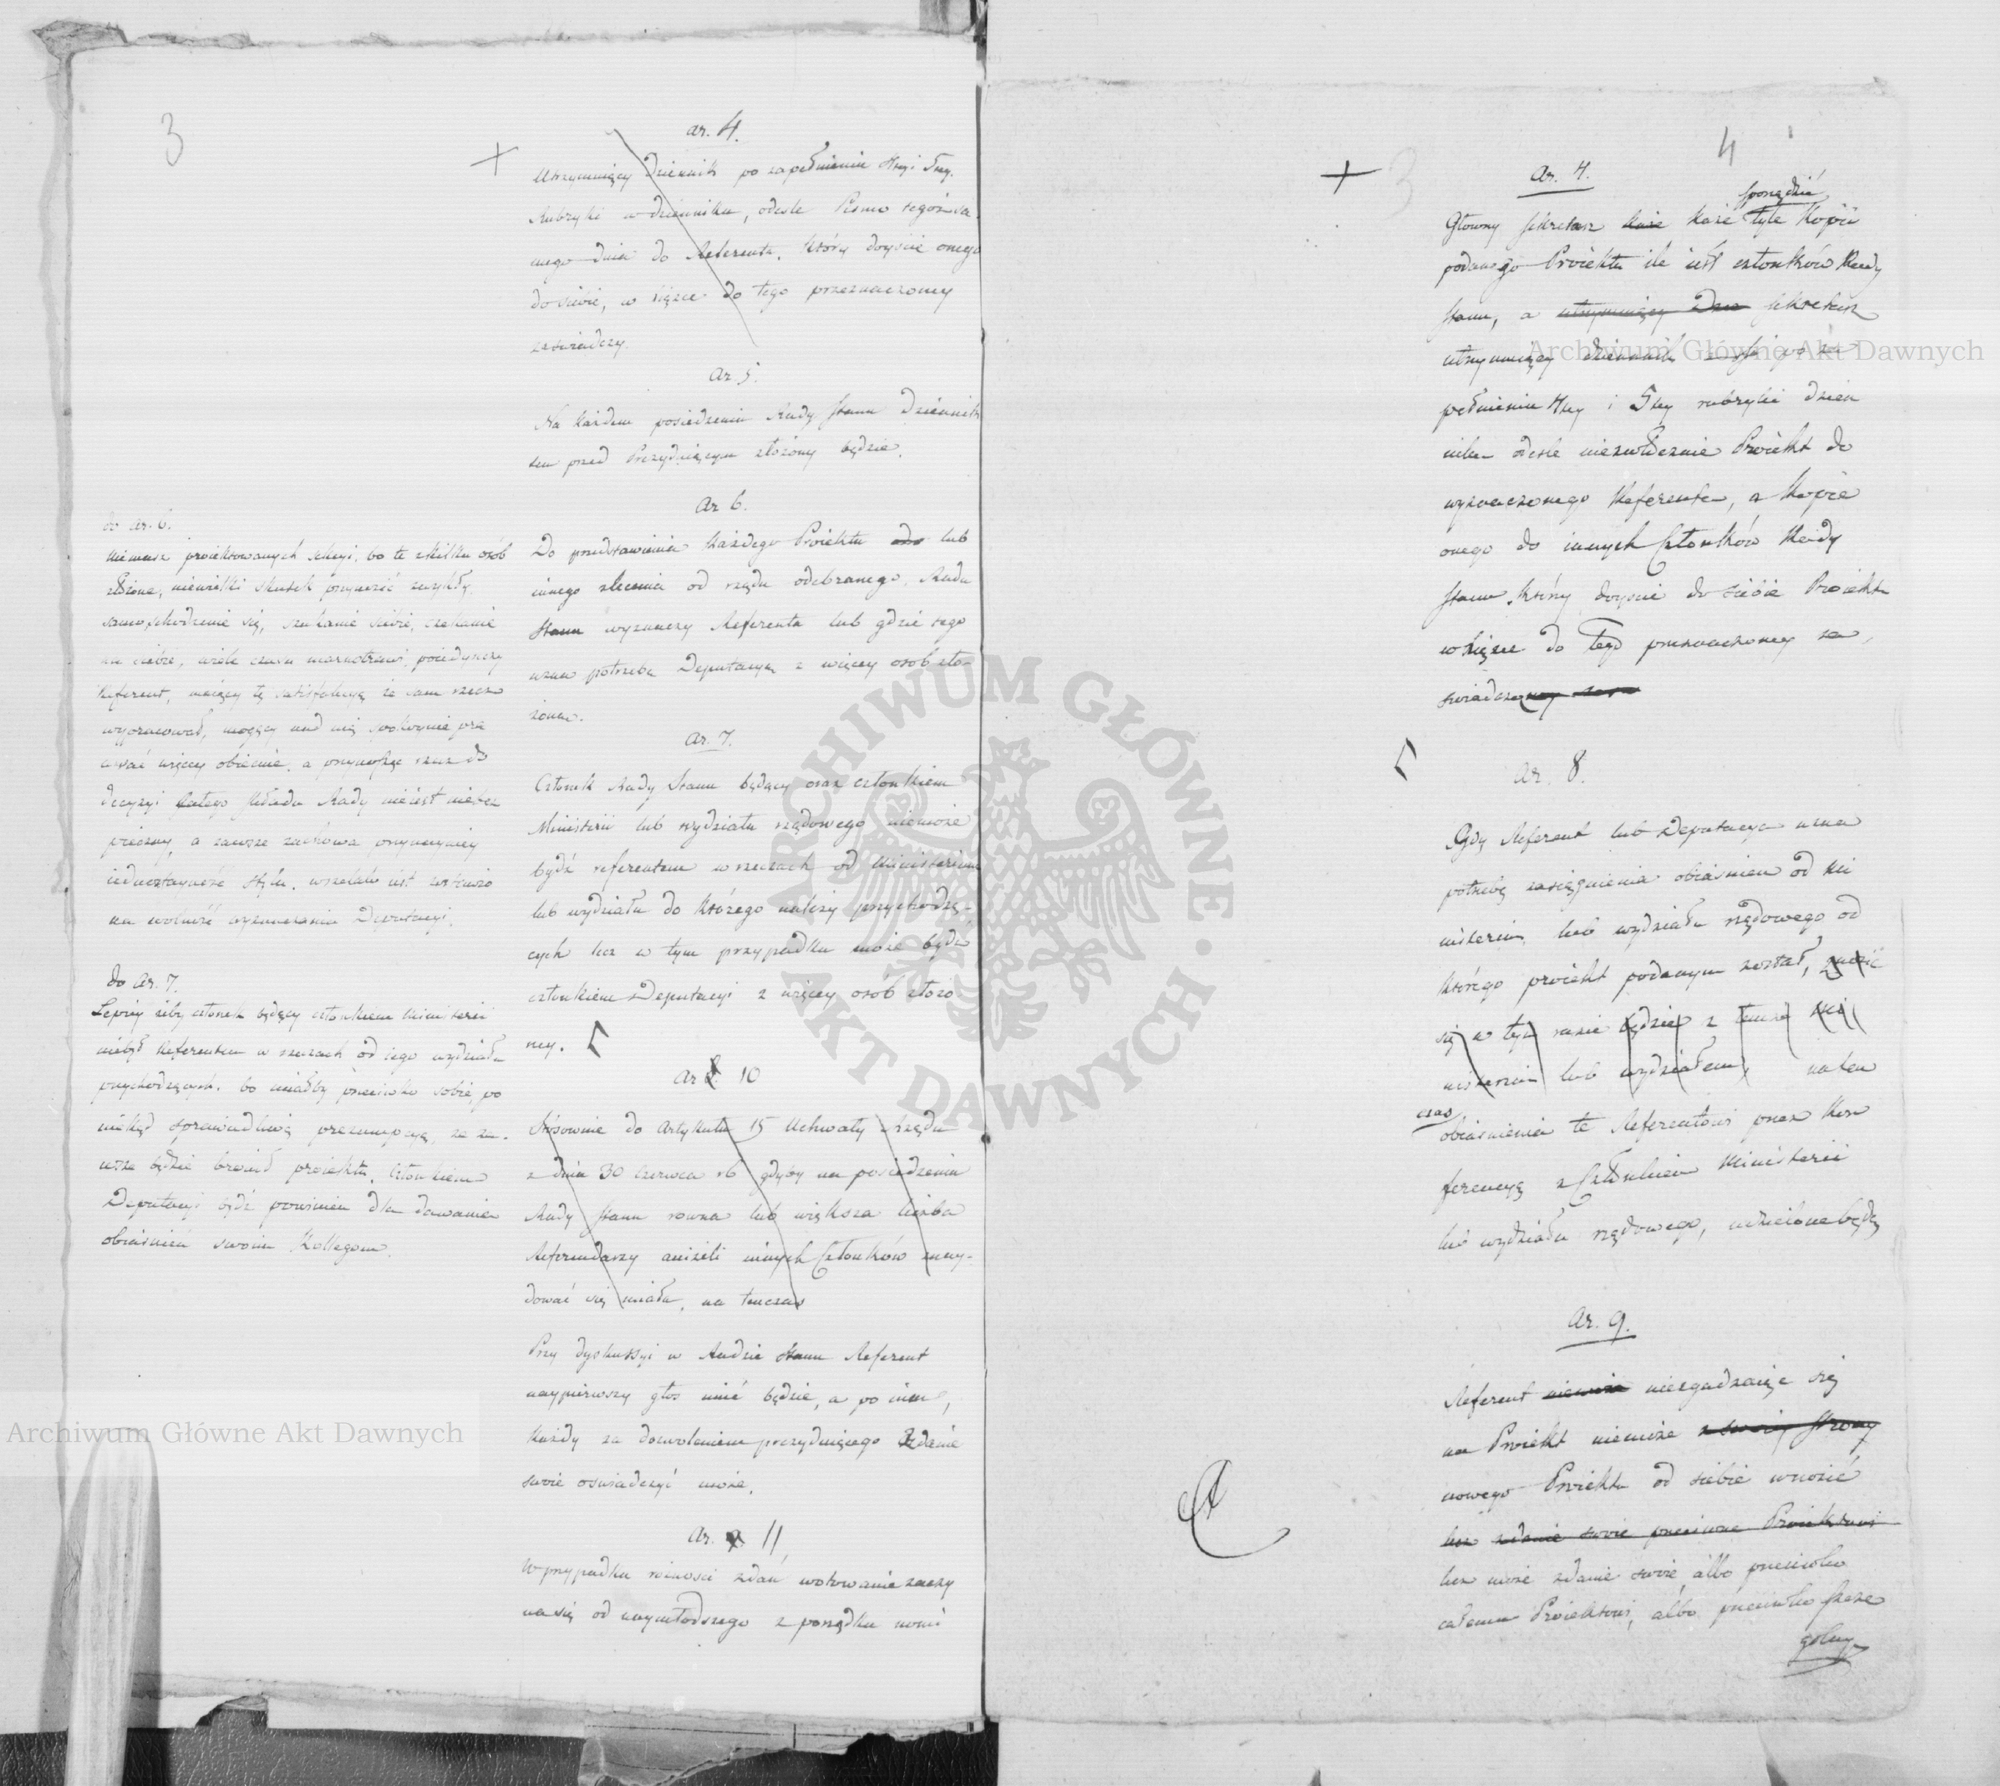 3
ar. 4.
+
Utrzymuiący Dziennik po zapełnieniu 4tey i 5tey
Rubryki w dzienniku, odeśle Pismo tegoż sa-
mego dnia do Referenta, który doyście onego
do siebie, w xiędze do tego przeznaczoney
zaświadczy.
Ar 5.
Na każdem posiedzeniu Rady Stanu dziennik
ten przed Prezyduiącym złożony będzie.
Ar 6.
Do przedstawienia każdego Proiektu lub
innego zlecenia od rządu odebranego, Rada
Stanu wyznaczy Referenta lub gdzie tego
uzna potrzebę Deputacyą z więcey osób zło-
żoną.
Ar. 7.
Członek Rady Stanu będący oraz członkiem
Ministerii lub wydziału rządowego niemoże
bydź referentem w rzeczach od Ministerium
lub wydziału do którego należy przychodzą-
cych lecz w tym przypadku może bydź
członkiem Deputacyi z więcey osób złożo-
ney.
Ar 8. 10
Stosownie do Artykułu 15 Uchwały Rządu
z dnia 30 czerwca rb gdyby na posiedzeniu
Rady Stanu rowna lub większa liczba
Referendarzy aniżeli innych Członków znay-
dować się miała, na tenczas
Przy dyskussyi w Radzie Stanu Referent
naypierwszy głos mieć będzie, a po nim,
każdy za dozwoleniem prezyduiącego zdanie
swoie oświadczyć może.
Ar. 9 11
W przypadku różności zdań wotowanie zaczy
na się od naymłodszego z porządku nomi
do ar. 6.
Niemasz proiektowanych sekcyi, bo te z kilku osób
złożone, niewielki skutek przynieść zwykły,
samo schodzenie się, szukanie siebie, czekanie
na siebie, wiele czasu marnotrawi, poiedynczy
Referent, maiący tę satisfakcyą że sam rzecz
wypracował, mogący nad nią spokoynie pra
cować więcey obiecuie, a przynosząc rzecz do
decyzyi całego składu Rady nieiest niebez
pieczny, a zawsze zachowa przynaymniey
iednostayność stylu, wszelako iest zostawio
na wolność wyznaczenia Deputacyi.
do ar. 7.
Lepiey żeby członek będący członkiem Ministerii
niebył Referentem w rzeczach od iego wydziału
przychodzących, bo miałby przeciwko sobie, po
niekąd sprawiedliwą prezumpcyą, że za-
wsze będzie bronił proiektu, członkiem
Deputacyi bydź powinien dla dawania
obiaśnień swoim Kollegom.
4
3
+
Ar. 4.
sporządzić
Głowny Sekretarz każe każe tyle Kopii
podanego Proiektu ile iest członków Rady
Stanu, a utrzymuiący Sekretarz
utrzymuiący dziennik po za
pełnieniu 4tey i 5tey rubryki dzien
nika odeśle niezwłocznie Proiekt do
wyznaczonego Referenta, a Kopie
onego do innych Członków Rady
Stanu, który doyście do siebie Proiektu
w xiędze do Tego przeznaczoney za,
świadczy
Ar. 8.
Gdy Referent lub Deputacya uzna
potrzebę zasięgnienia obiaśnień od Mi
nisterium lub wydziału rządowego od
którego proiekt podanym został, znieść
się w tym razie będzie z temże Mi
nisterium lub wydziałem, na ten
czas
obiaśnienia te Referentowi przez Kon
ferencyą z Członkiem Ministerii
lub wydziału rządowego, udzielone będą
Ar. 9.
Referent niezgadzaiąc się
na Proiekt niemoże z swoiey strony
nowego Proiektu od siebie wnosić
lecz zdanie swoie przeciwne Proiektowi
lecz może zdanie swoie albo przeciwko
całemu Proiektowi, albo przeciwko szcze
gólny
Archiwum Główne Akt Dawnych
Archiwum Główne Akt Dawnych
ARCHIWUM GŁÓWNE · AKT DAWNYCH ·